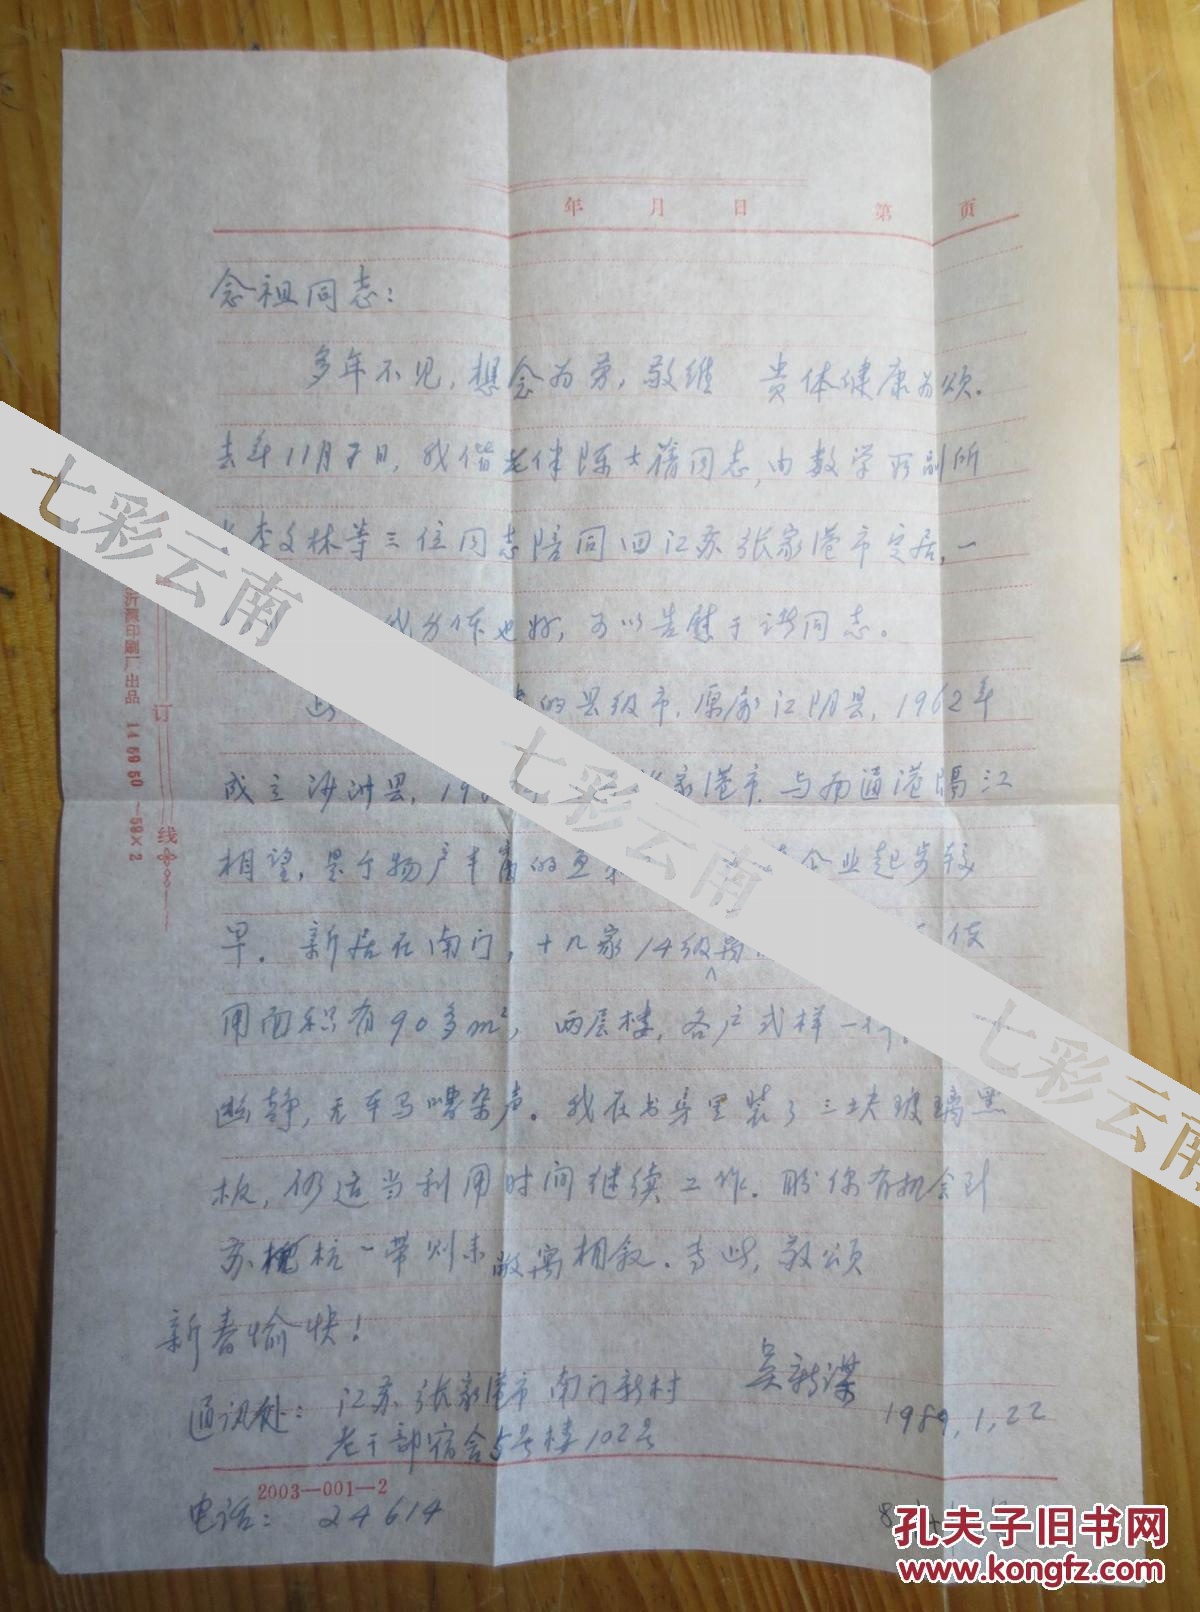 年 月 日 第 页
念祖同志：
多年不见，想念为劳，敬维 贵体健康为颂．
去年11月7日，我偕老伴陈大蓓同志，由数学所副所
李文林等三位同志陪同回江苏张家港市定居，一
也好，可以告慰于诸同志。
的县级市．原属江阴县，1962年
成立沙洲县，19 家港市．与南通港隔江
相望，是个物产丰富的鱼 企业起步较
早．新居在南门，十几家14级
用面积有90多m²，两层楼，各户式样一
幽静，无车马嘈杂声。我在书房里装了三块玻璃黑
板，仍适当利用时间继续工作．盼你有机会到
苏杭一带则来敝寓相叙．专此，敬颂
新春愉快！
吴新谋
1989,1,22
通讯处：江苏张家港市南门新村
老干部宿舍5号楼102号
2003—001—2
电话：24614
订
线
印刷厂出品
七彩云南
七彩云南
七彩云南
孔夫子旧书网
www.kongfz.com